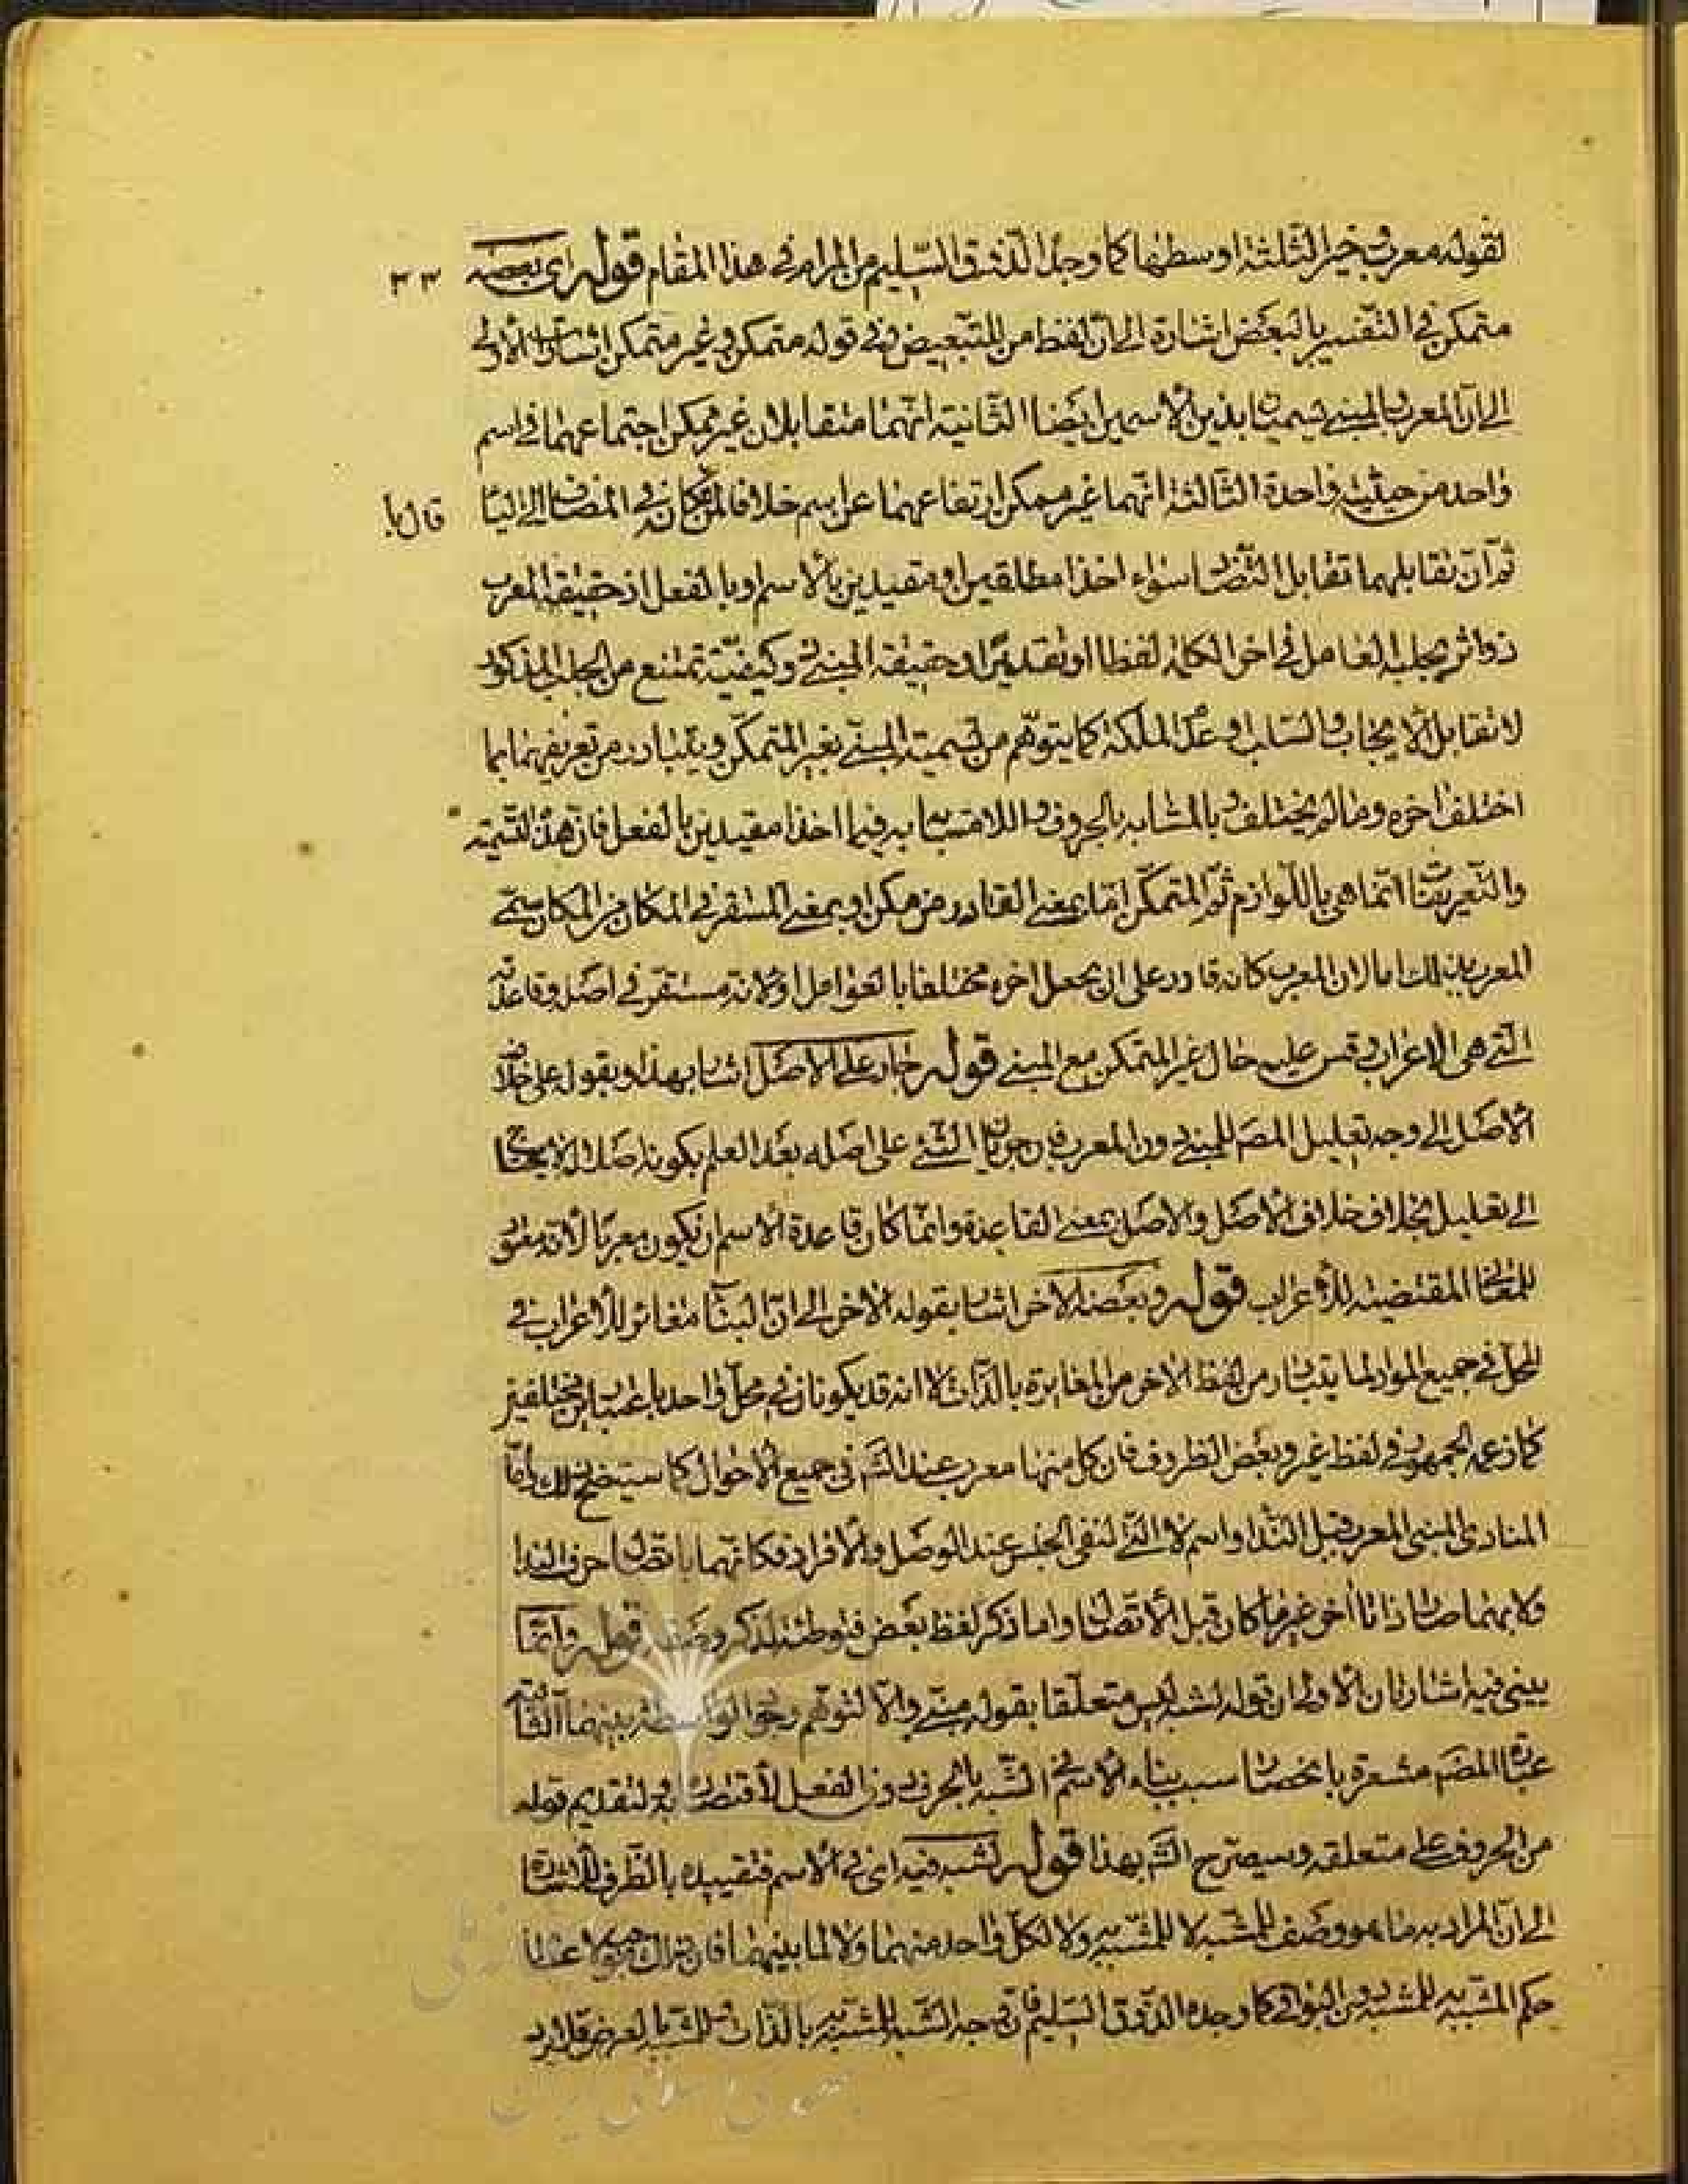 لقوله معرب وخير الثلثة اوسطها كما وجد الذوق السليم من المرام في هذا المقام قوله اى بعضه
٣٣
متمكن في التفسير بالبعض اشارة الى ان لفظ من للتبعيض وفي قوله متمكن وغير متمكن اشارات الاولى
الى ان المعرب والمبنى يسميان بذين الاسمين ايضا الثانية انهما متقابلان غير ممكن اجتماعهما في اسم
واحد من حيثية واحدة الثالثة انهما غير ممكن ارتفاعهما عن اسم خلافا لمن في المضاف الى اليا
قال با
ثم ان تقابلهما تقابل التضا سواء اخذا مطلقين او مقيدين بالاسم او بالفعل اذ حقيقة المعرب
ذو اثر يجلبه العامل في اخر الكلمة لفظا او تقديرا وحقيقة المبنى ذو كيفية تمتنع من الجلب المذكور
لا تقابل الايجاب والسلب او عدم الملكة كما يتوهم من تسمية المبنى بغير المتمكن ويتبادر من تعريفهما بما
اختلف اخره وما لم يختلف وبالمشابه بالحروف واللامتشابه فيما اخذا مقيدين بالفعل فان هذه التسمية
والتعريفات انما هي باللوازم ثم المتمكن اما بمعنى القادر من مكن او بمعنى المستقر في المكان من المكان سمى
المعرب بذلك اما لان المعرب كانه قادر على ان يجعل اخره مختلفا بالعوامل او لانه مستقر في اصله وقاعدته
التي هي الاعراب وقس عليه حال غير المتمكن مع المبنى قوله جار على الاصل اشار بهذا وبقوله على خلاف
الاصل الى وجه تعليل المص للمبنى دون المعرب فان جريان الشئ على اصله بعد العلم بكونه اصلا لا يحتاج
الى تعليل بخلاف خلاف الاصل والاصل بمعنى القاعدة وانما كان قاعدة الاسم ان يكون معربا لانه معتور
للمعانى المقتضية للاعراب قوله وبعضه الاخر اشار بقوله الاخر الى ان البناء مغائر للاعراب في
المحل في جميع المواد لما يتبادر من لفظ الاخر من المغايرة بالذات لا انه قد يكونان في محل واحد باعتبارين مختلفين
كما زعمه الجمهور في لفظ غير وبعض الظروف فان كل منها معرب عند الش في جميع الاحوال كما سيتضح لك واما
المنادى المبنى المعرب قبل الندا واسم لا التي لنفى الجنس عند الوصل والافراد فكانهما باتصال حرف الندا
ولا بهما صارا ذاتا اخر غير ما كان قبل الاتصال واما ذكر لفظ بعض فتوطئة لذكر وصفه قوله وانما
يبنى فيه اشارتان الاولى ان قوله لشبه ليس متعلقا بقوله مبنى والا لتوهم وجود الواسطة بينهما الثانية
عبارة المص مشعرة باختصاص سبب بناء الاسم في الشبه بالحرف دون الفعل لاقتضا به لتقديم قوله
من الحروف على متعلقه وسيصرح الش بهذا قوله لشبه فيه اى في الاسم فتقييده بالظرف للاشارة
الى ان المراد به ما هو وصف للمشبه لا للمشبه به ولا لكل واحد منهما ولا لما بينهما فان
حكم المشبه به للمشبه دون البواقى كما وجده الذوق السليم فان وجه الشبه للمشبه به بالذات وللمشبه بالعرض